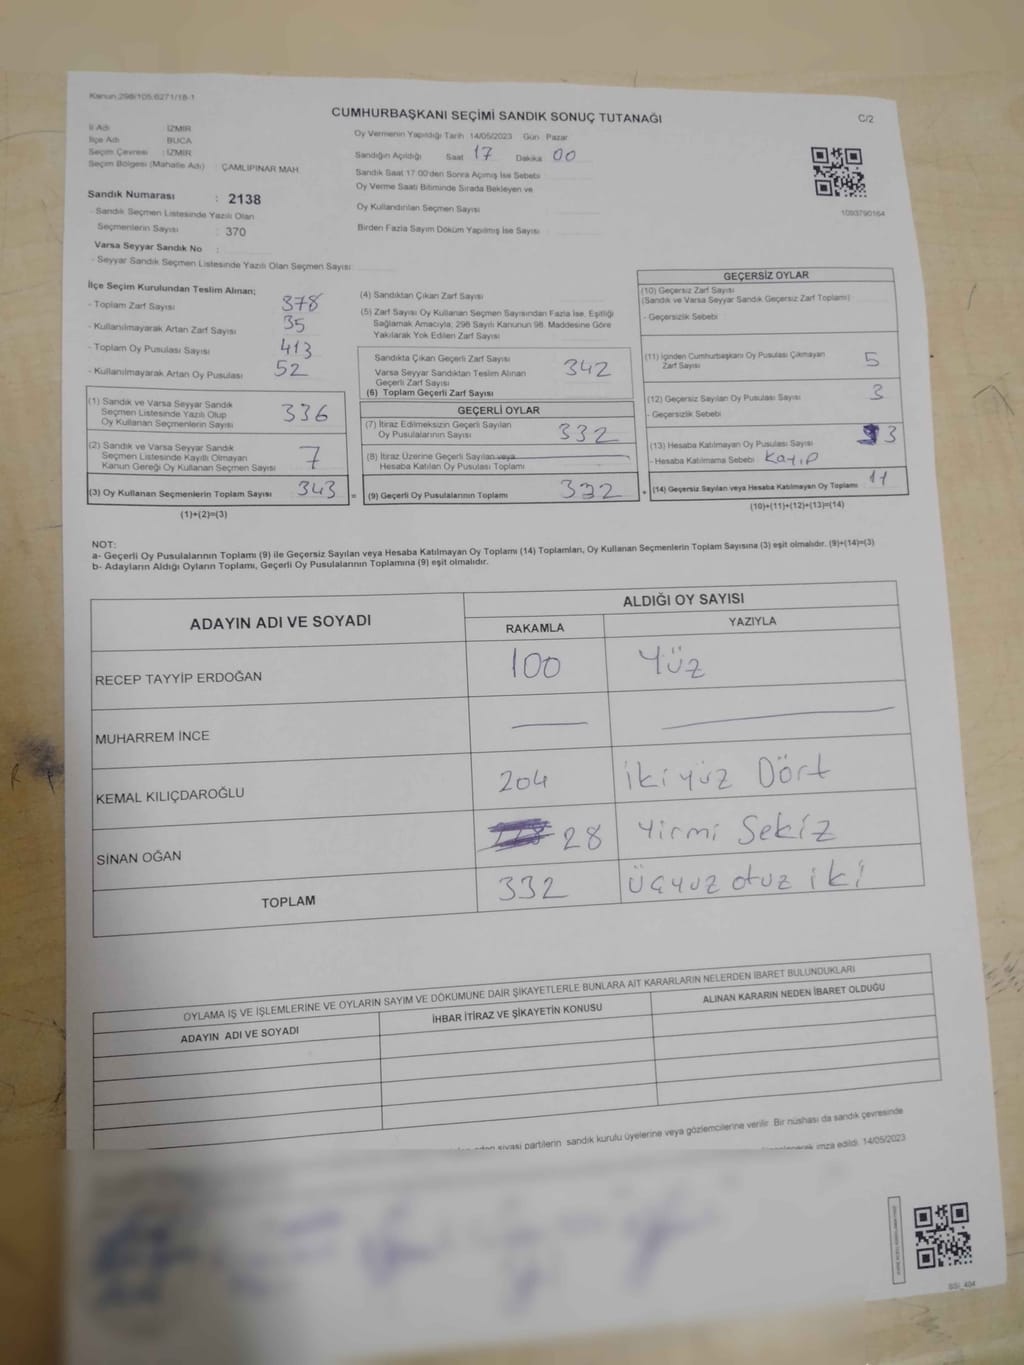 Kanun 298/105.6271/18-1
CUMHURBAŞKANI SEÇİMİ SANDIK SONUÇ TUTANAĞI
C/2
İl Adı İZMİR
İlçe Adı BUCA
Seçim Çevresi : İZMİR
Seçim Bölgesi (Mahalle Adı) : ÇAMLIPINAR MAH
Sandık Numarası : 2138
- Sandık Seçmen Listesinde Yazılı Olan
Seçmenlerin Sayısı : 370
Varsa Seyyar Sandık No :
- Seyyar Sandık Seçmen Listesinde Yazılı Olan Seçmen Sayısı:
Oy Vermenin Yapıldığı Tarih 14/05/2023 Gün : Pazar
Sandığın Açıldığı Saat 17 Dakika 00
Sandık Saat 17:00'den Sonra Açımış İse Sebebi
Oy Verme Saati Bitiminde Sırada Bekleyen ve
Oy Kullandırılan Seçmen Sayısı
Birden Fazla Sayım Döküm Yapılmış İse Sayısı
1093790164
İlçe Seçim Kurulundan Teslim Alınan;
- Toplam Zarf Sayısı 378
- Kullanılmayarak Artan Zarf Sayısı 35
- Toplam Oy Pusulası Sayısı 413
- Kullanılmayarak Artan Oy Pusulası 52
(1) Sandık ve Varsa Seyyar Sandık
Seçmen Listesinde Yazılı Olup
Oy Kullanan Seçmenlerin Sayısı 336
(2) Sandık ve Varsa Seyyar Sandık
Seçmen Listesinde Kayıtlı Olmayan
Kanun Gereği Oy Kullanan Seçmen Sayısı 7
(3) Oy Kullanan Seçmenlerin Toplam Sayısı 343 =
(1)+(2)=(3)
(4) Sandıktan Çıkan Zarf Sayısı
(5) Zarf Sayısı Oy Kullanan Seçmen Sayısından Fazla İse, Eşitliği
Sağlamak Amacıyla, 298 Sayılı Kanunun 98. Maddesine Göre
Yakılarak Yok Edilen Zarf Sayısı
Sandıkta Çıkan Geçerli Zarf Sayısı
Varsa Seyyar Sandıktan Teslim Alınan
Geçerli Zarf Sayısı
(6) Toplam Geçerli Zarf Sayısı 342
GEÇERLİ OYLAR
(7) İtiraz Edilmeksizin Geçerli Sayılan
Oy Pusulalarının Sayısı 332
(8) İtiraz Üzerine Geçerli Sayılan veya
Hesaba Katılan Oy Pusulası Toplamı
(9) Geçerli Oy Pusulalarının Toplamı 332 +
GEÇERSİZ OYLAR
(10) Geçersiz Zarf Sayısı
(Sandık ve Varsa Seyyar Sandık Geçersiz Zarf Toplamı)
- Geçersizlik Sebebi
(11) İçinden Cumhurbaşkanı Oy Pusulası Çıkmayan
Zarf Sayısı 5
(12) Geçersiz Sayılan Oy Pusulası Sayısı 3
- Geçersizlik Sebebi
(13) Hesaba Katılmayan Oy Pusulası Sayısı 3
- Hesaba Katılmama Sebebi Kayıp
(14) Geçersiz Sayılan veya Hesaba Katılmayan Oy Toplamı 11
(10)+(11)+(12)+(13)=(14)
NOT:
a- Geçerli Oy Pusulalarının Toplamı (9) ile Geçersiz Sayılan veya Hesaba Katılmayan Oy Toplamı (14) Toplamları, Oy Kullanan Seçmenlerin Toplam Sayısına (3) eşit olmalıdır. (9)+(14)=(3)
b- Adayların Aldığı Oyların Toplamı, Geçerli Oy Pusulalarının Toplamına (9) eşit olmalıdır.
ADAYIN ADI VE SOYADI ALDIĞI OY SAYISI
RAKAMLA YAZIYLA
RECEP TAYYİP ERDOĞAN 100 Yüz
MUHARREM İNCE
KEMAL KILIÇDAROĞLU 204 iki yüz Dört
SİNAN OĞAN 28 Yirmi Sekiz
TOPLAM 332 üçyuz otuz iki
OYLAMA İŞ VE İŞLEMLERİNE VE OYLARIN SAYIM VE DÖKÜMÜNE DAİR ŞİKAYETLERLE BUNLARA AİT KARARLARIN NELERDEN İBARET BULUNDUKLARI
ADAYIN ADI VE SOYADI İHBAR İTİRAZ VE ŞİKAYETİN KONUSU ALINAN KARARIN NEDEN İBARET OLDUĞU
siyasi partilerin sandık kurulu üyelerine veya gözlemcilerine verilir. Bir nüshası da sandık çevresinde
imza edildi. 14/05/2023
SSI_404